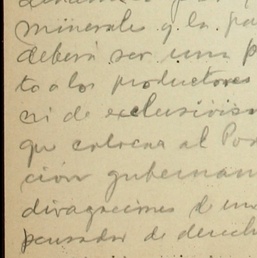 minerales y la pa
deberá ser una p
to a los productores
ni de exclusivis
que colocan al Po
ción gubernan
divagaciones d un
pensador de derech